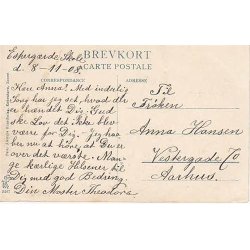 Espergærde Skole
d. 8-11-08.
BREVKORT
CARTE POSTALE
CORRESPONDANCE
ADRESSE
Kære Anna! Med inderlig
Sorg har jeg set, hvad der
er hændet Dig. Gud
ske Lov det ikke blev
værre for Dig. Jeg haa-
ber nu at höre, at Du
er over det værste. Man-
ge kærlige Hilsener til
Dig med god Bedring.
Din Moster Theodora.
Til
Fröken
Anna Hansen
Vestergade 70
Aarhus.